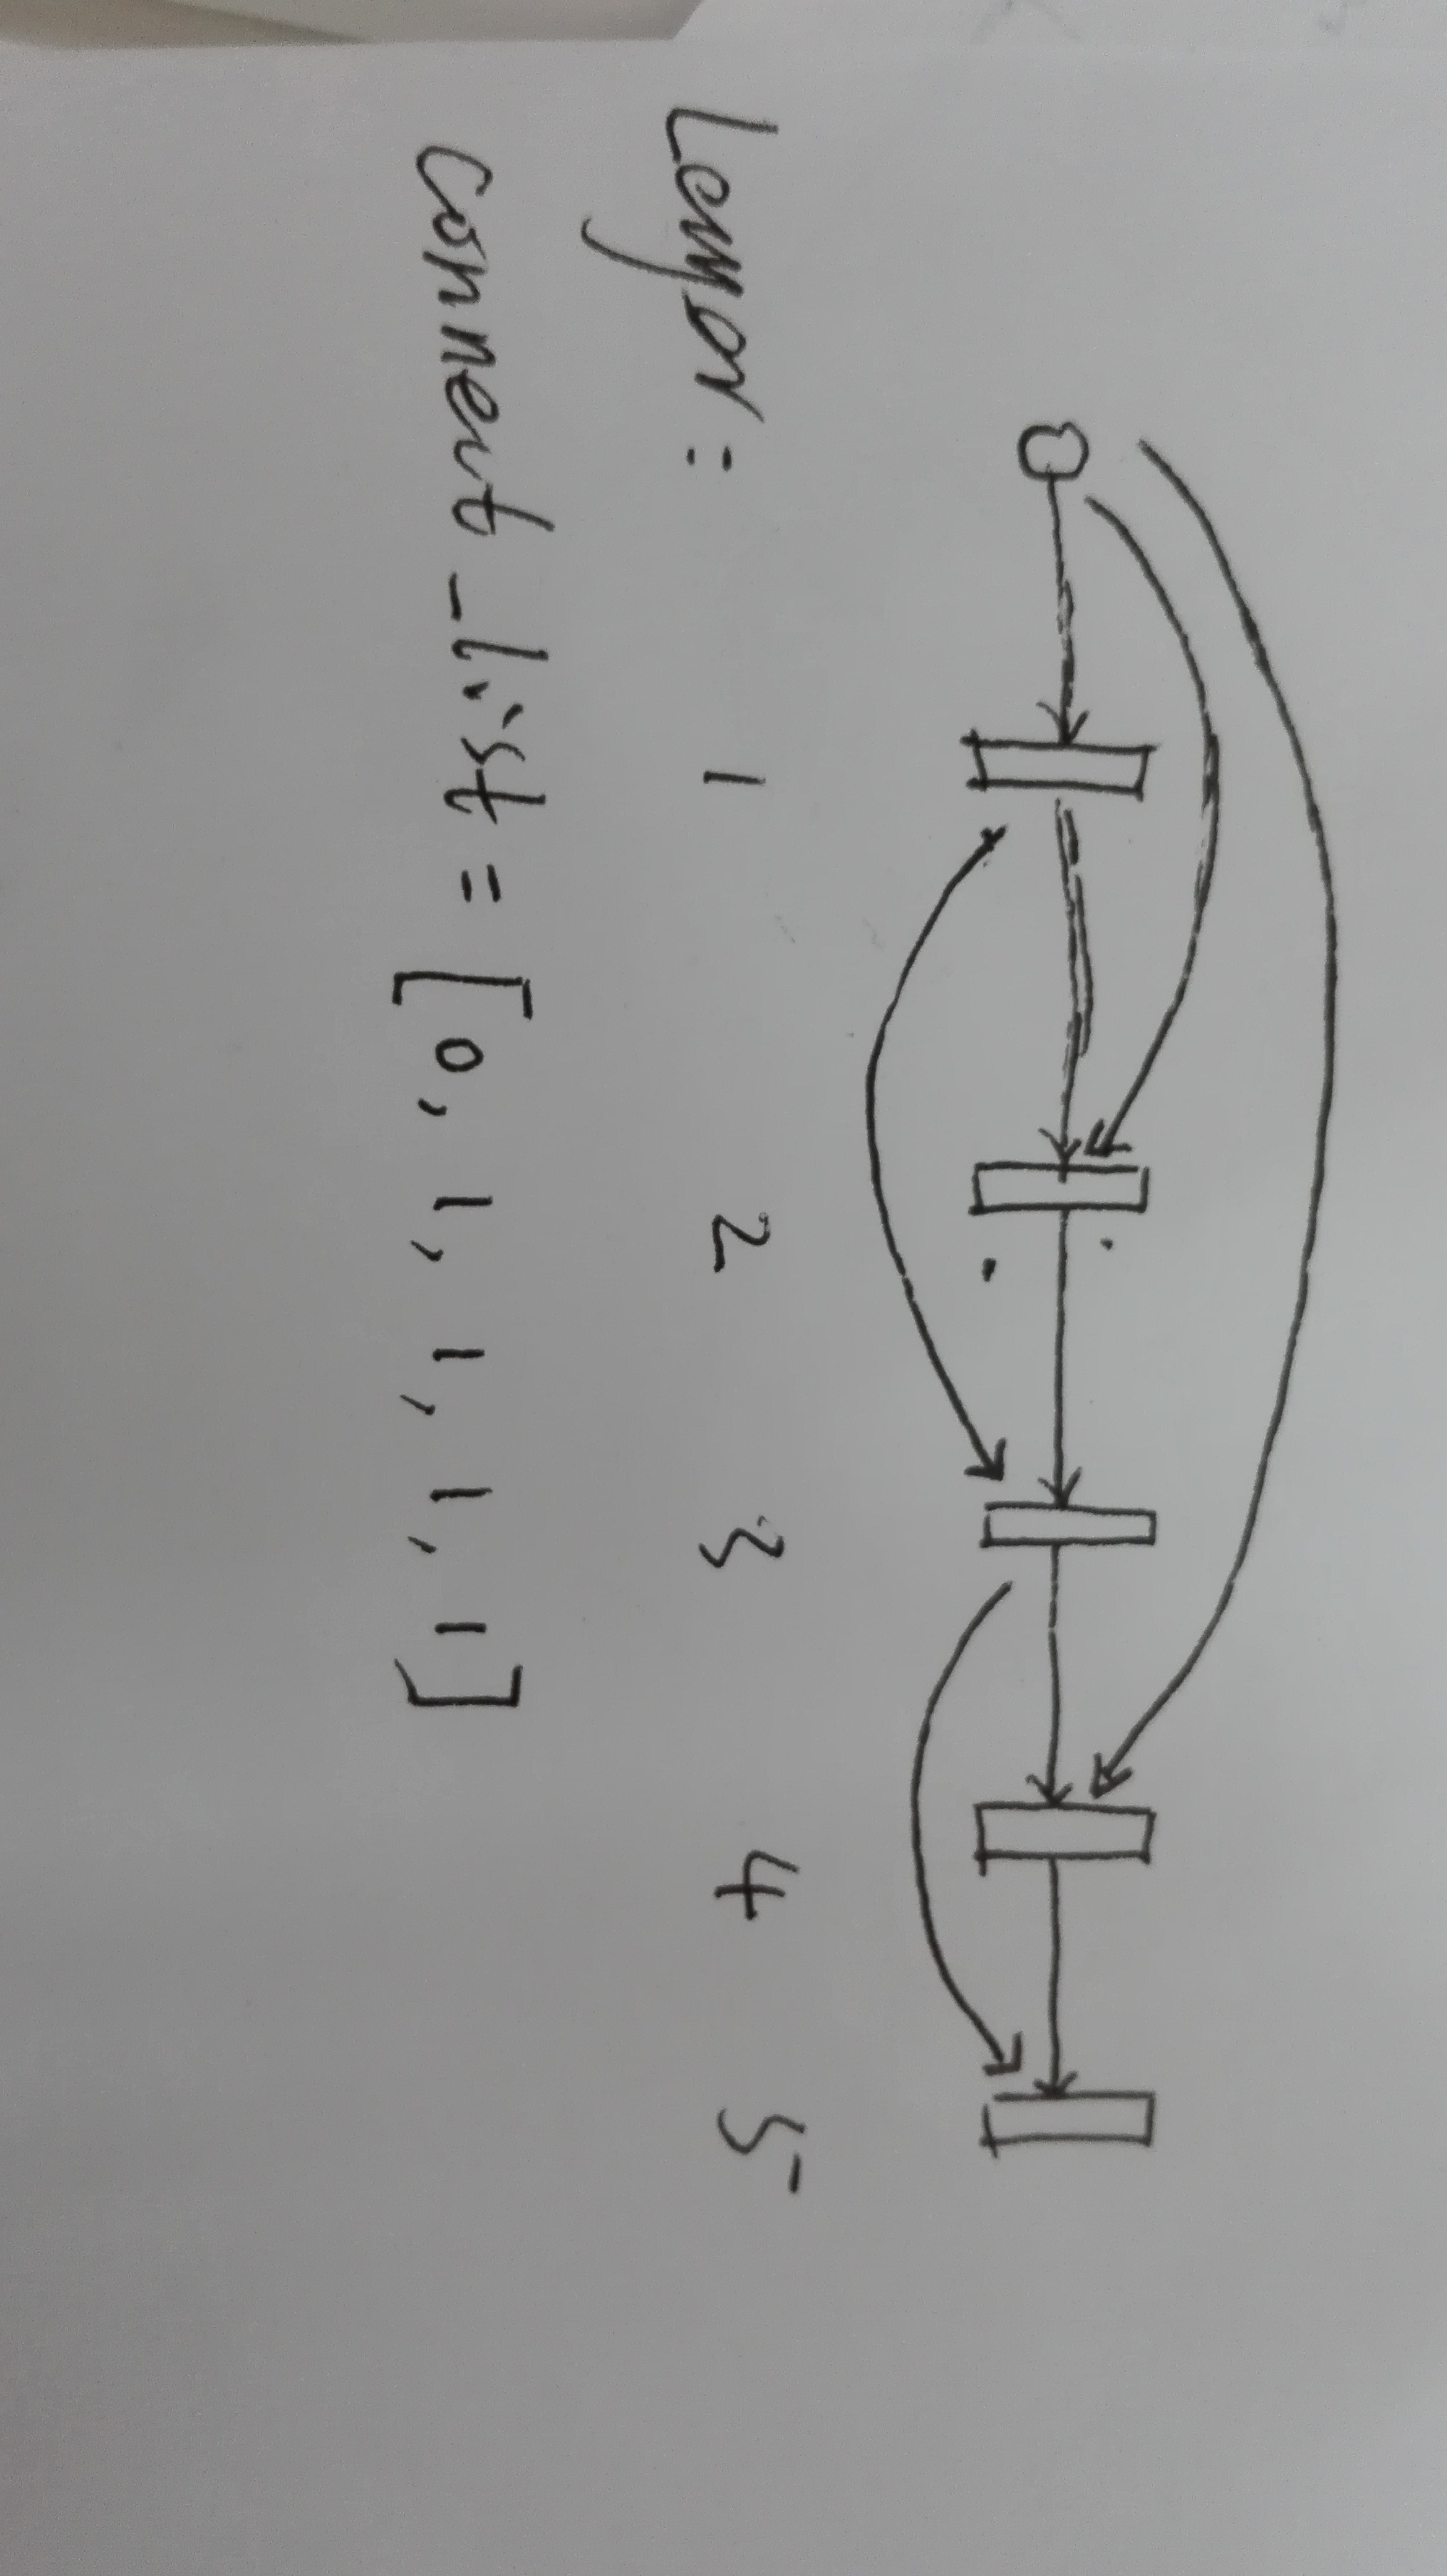 Layer : 1 2 3 4 5
connect_list = [0, 1, 1, 1, 1]